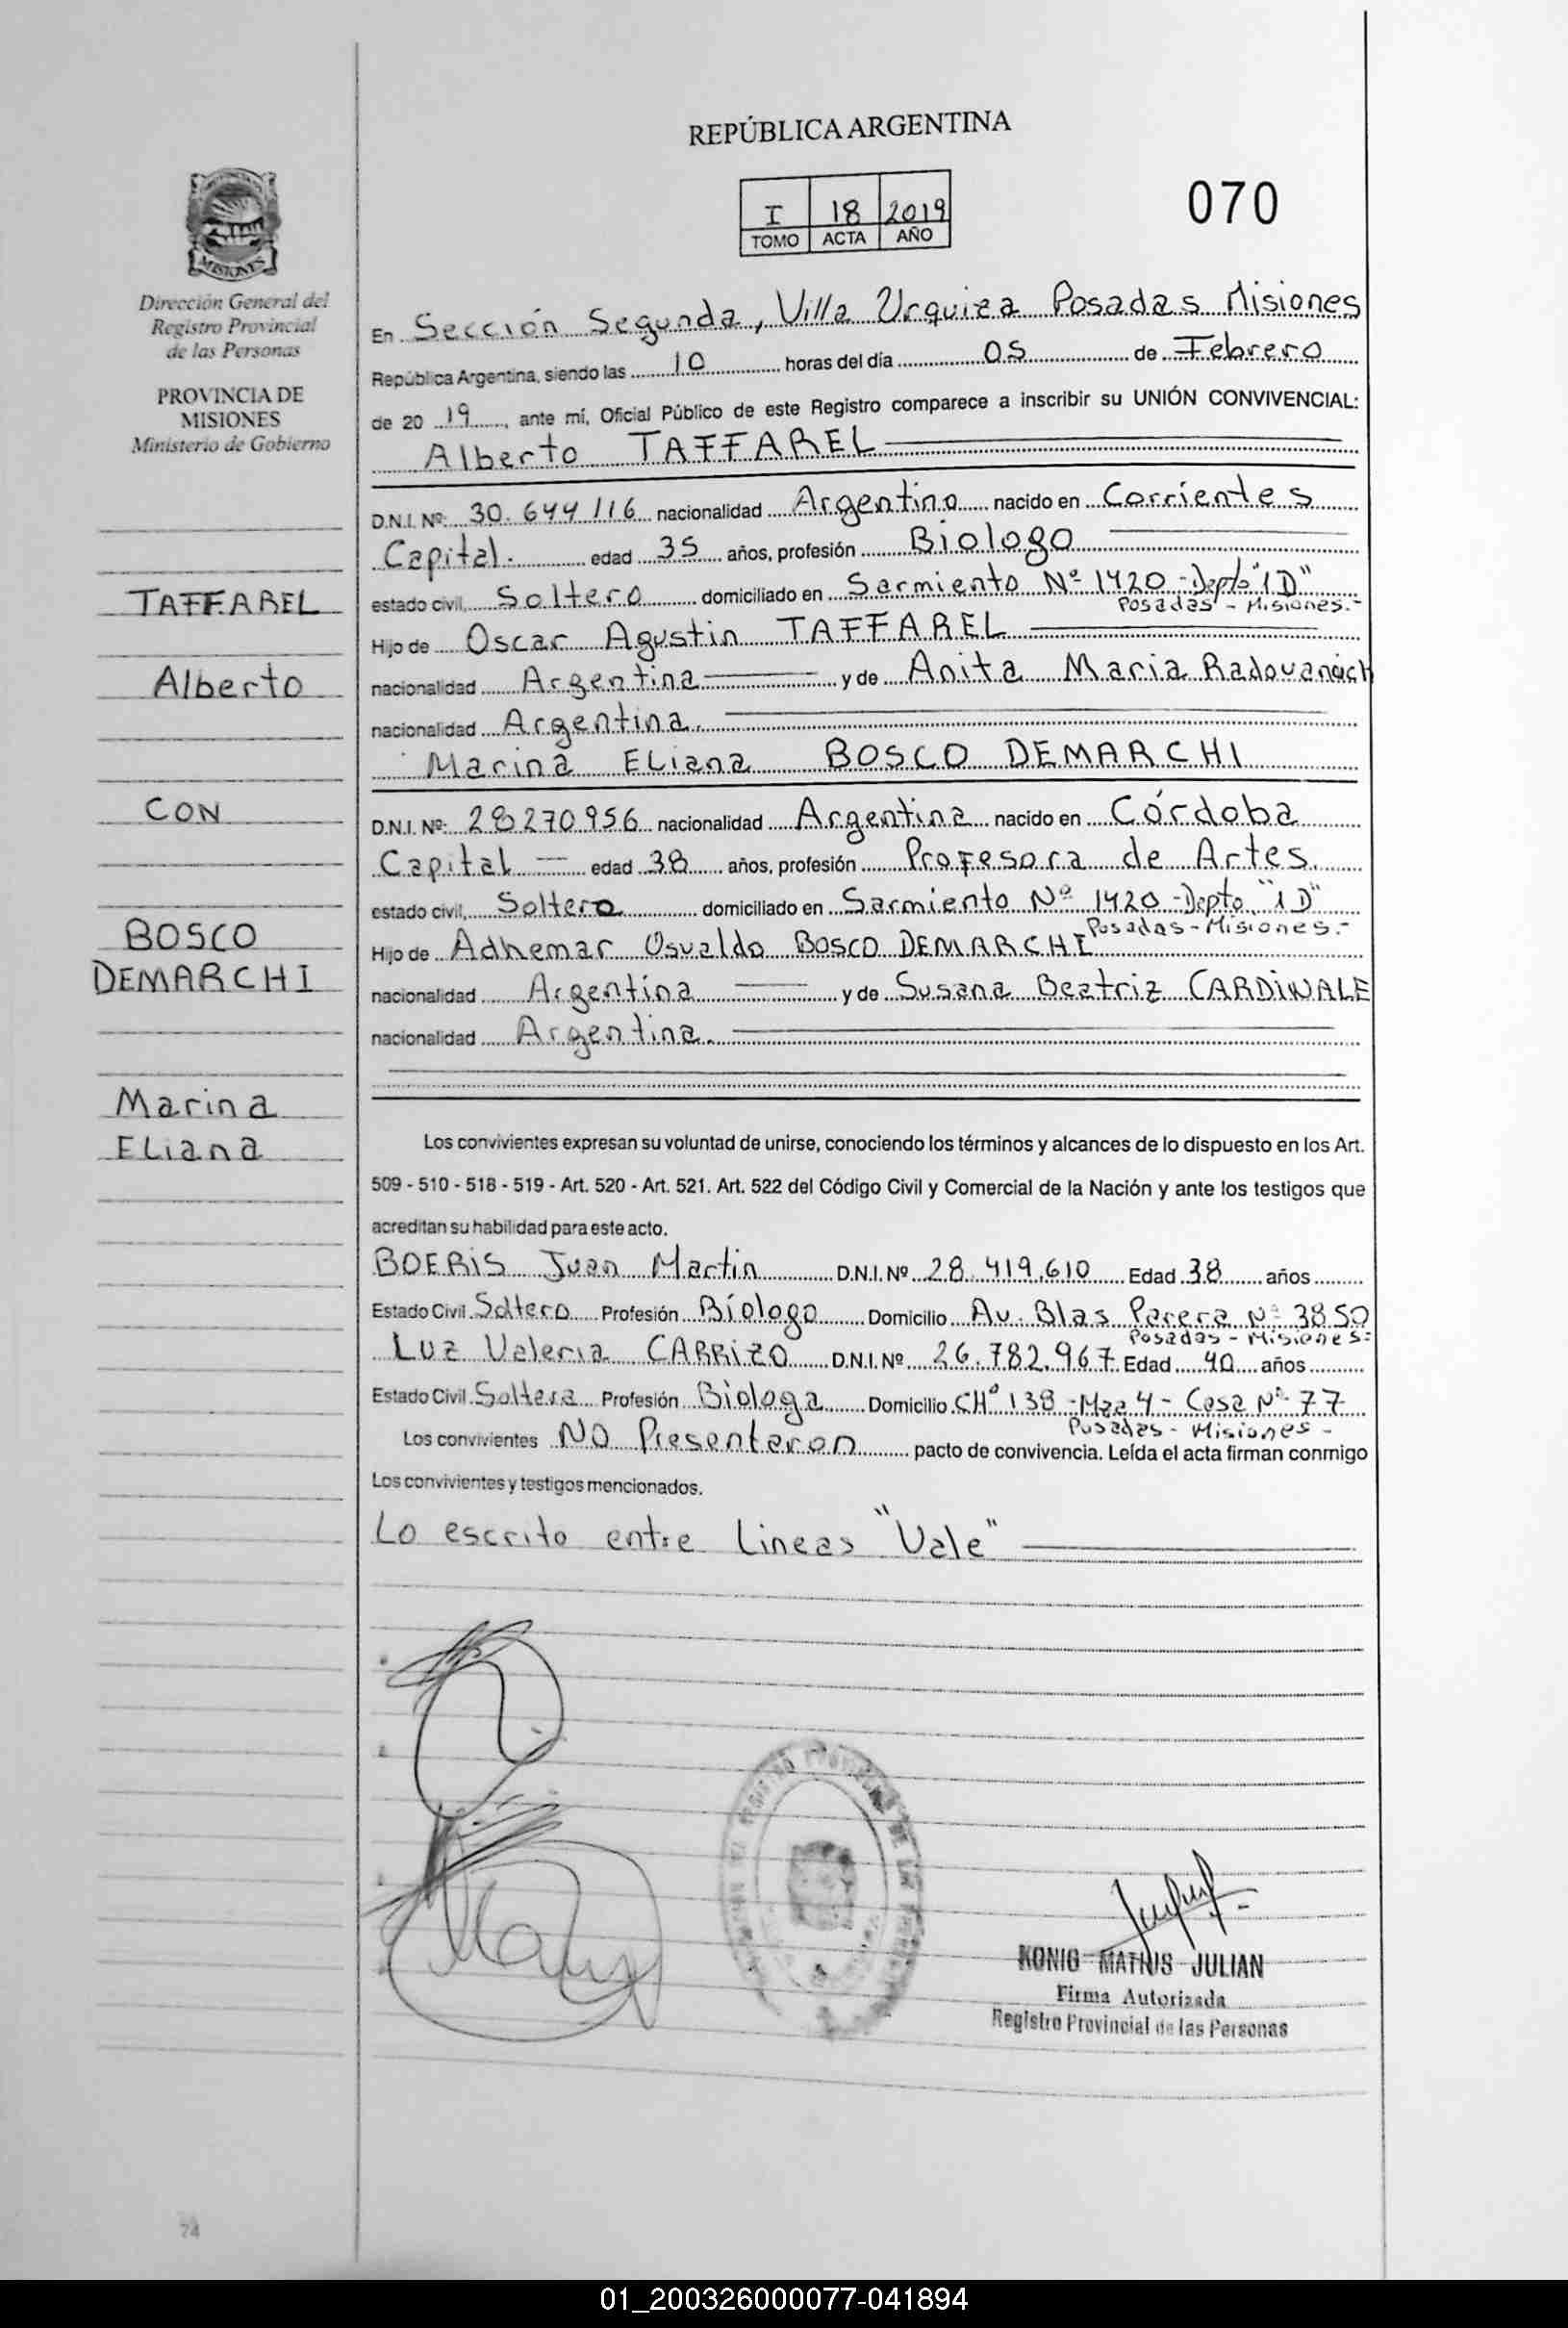 REPÚBLICA ARGENTINA
I 18 2019
TOMO ACTA AÑO
070
Dirección General del
Registro Provincial
de las Personas
PROVINCIA DE
MISIONES
Ministerio de Gobierno
TAFFAREL
Alberto
CON
BOSCO
DEMARCHI
Marina
ELiana
En Sección Segunda, Villa Urquiza Posadas Misiones
República Argentina, siendo las 10 horas del día 05 de Febrero
de 2019, ante mí, Oficial Público de este Registro comparece a inscribir su UNIÓN CONVIVENCIAL:
Alberto TAFFAREL
D.N.I. Nº: 30.644116 nacionalidad Argentino nacido en Corrientes
Capital. edad 35 años, profesión Biologo
estado civil, Soltero domiciliado en Sarmiento Nº 1420 - Depto "1D"
Posadas - Misiones.-
Hijo de Oscar Agustin TAFFAREL
nacionalidad Argentina y de Anita Maria
nacionalidad Argentina.
Marina ELiana BOSCO DEMARCHI
D.N.I. Nº: 28270956 nacionalidad Argentina nacido en Córdoba
Capital edad 38 años, profesión Profesora de Artes.
estado civil, Soltera domiciliado en Sarmiento Nº 1420 - Depto. "1D"
Posadas - Misiones.-
Hijo de Adhemar Osvaldo BOSCO DEMARCHI
nacionalidad Argentina y de Susana Beatriz CARDINALE
nacionalidad Argentina.
Los convivientes expresan su voluntad de unirse, conociendo los términos y alcances de lo dispuesto en los Art.
509 - 510 - 518 - 519 - Art. 520 - Art. 521. Art. 522 del Código Civil y Comercial de la Nación y ante los testigos que
acreditan su habilidad para este acto.
BOERIS Juan Martin D.N.I. Nº 28.419.610 Edad 38 años
Estado Civil Soltero Profesión Biologo Domicilio Av. Blas Parera Nº 3850
Posadas - Misiones.-
Luz Valeria CARRIZO D.N.I. Nº 26.782.967 Edad 40 años
Estado Civil Soltera Profesión Biologa Domicilio CHº 138 - Mza 4 - Casa Nº 77
Posadas - Misiones -
Los convivientes NO Presentaron pacto de convivencia. Leída el acta firman conmigo
Los convivientes y testigos mencionados.
Lo escrito entre Lineas "Vale"
KONIG MATHIS JULIAN
Firma Autorizada
Registro Provincial de las Personas
74
01_200326000077-041894